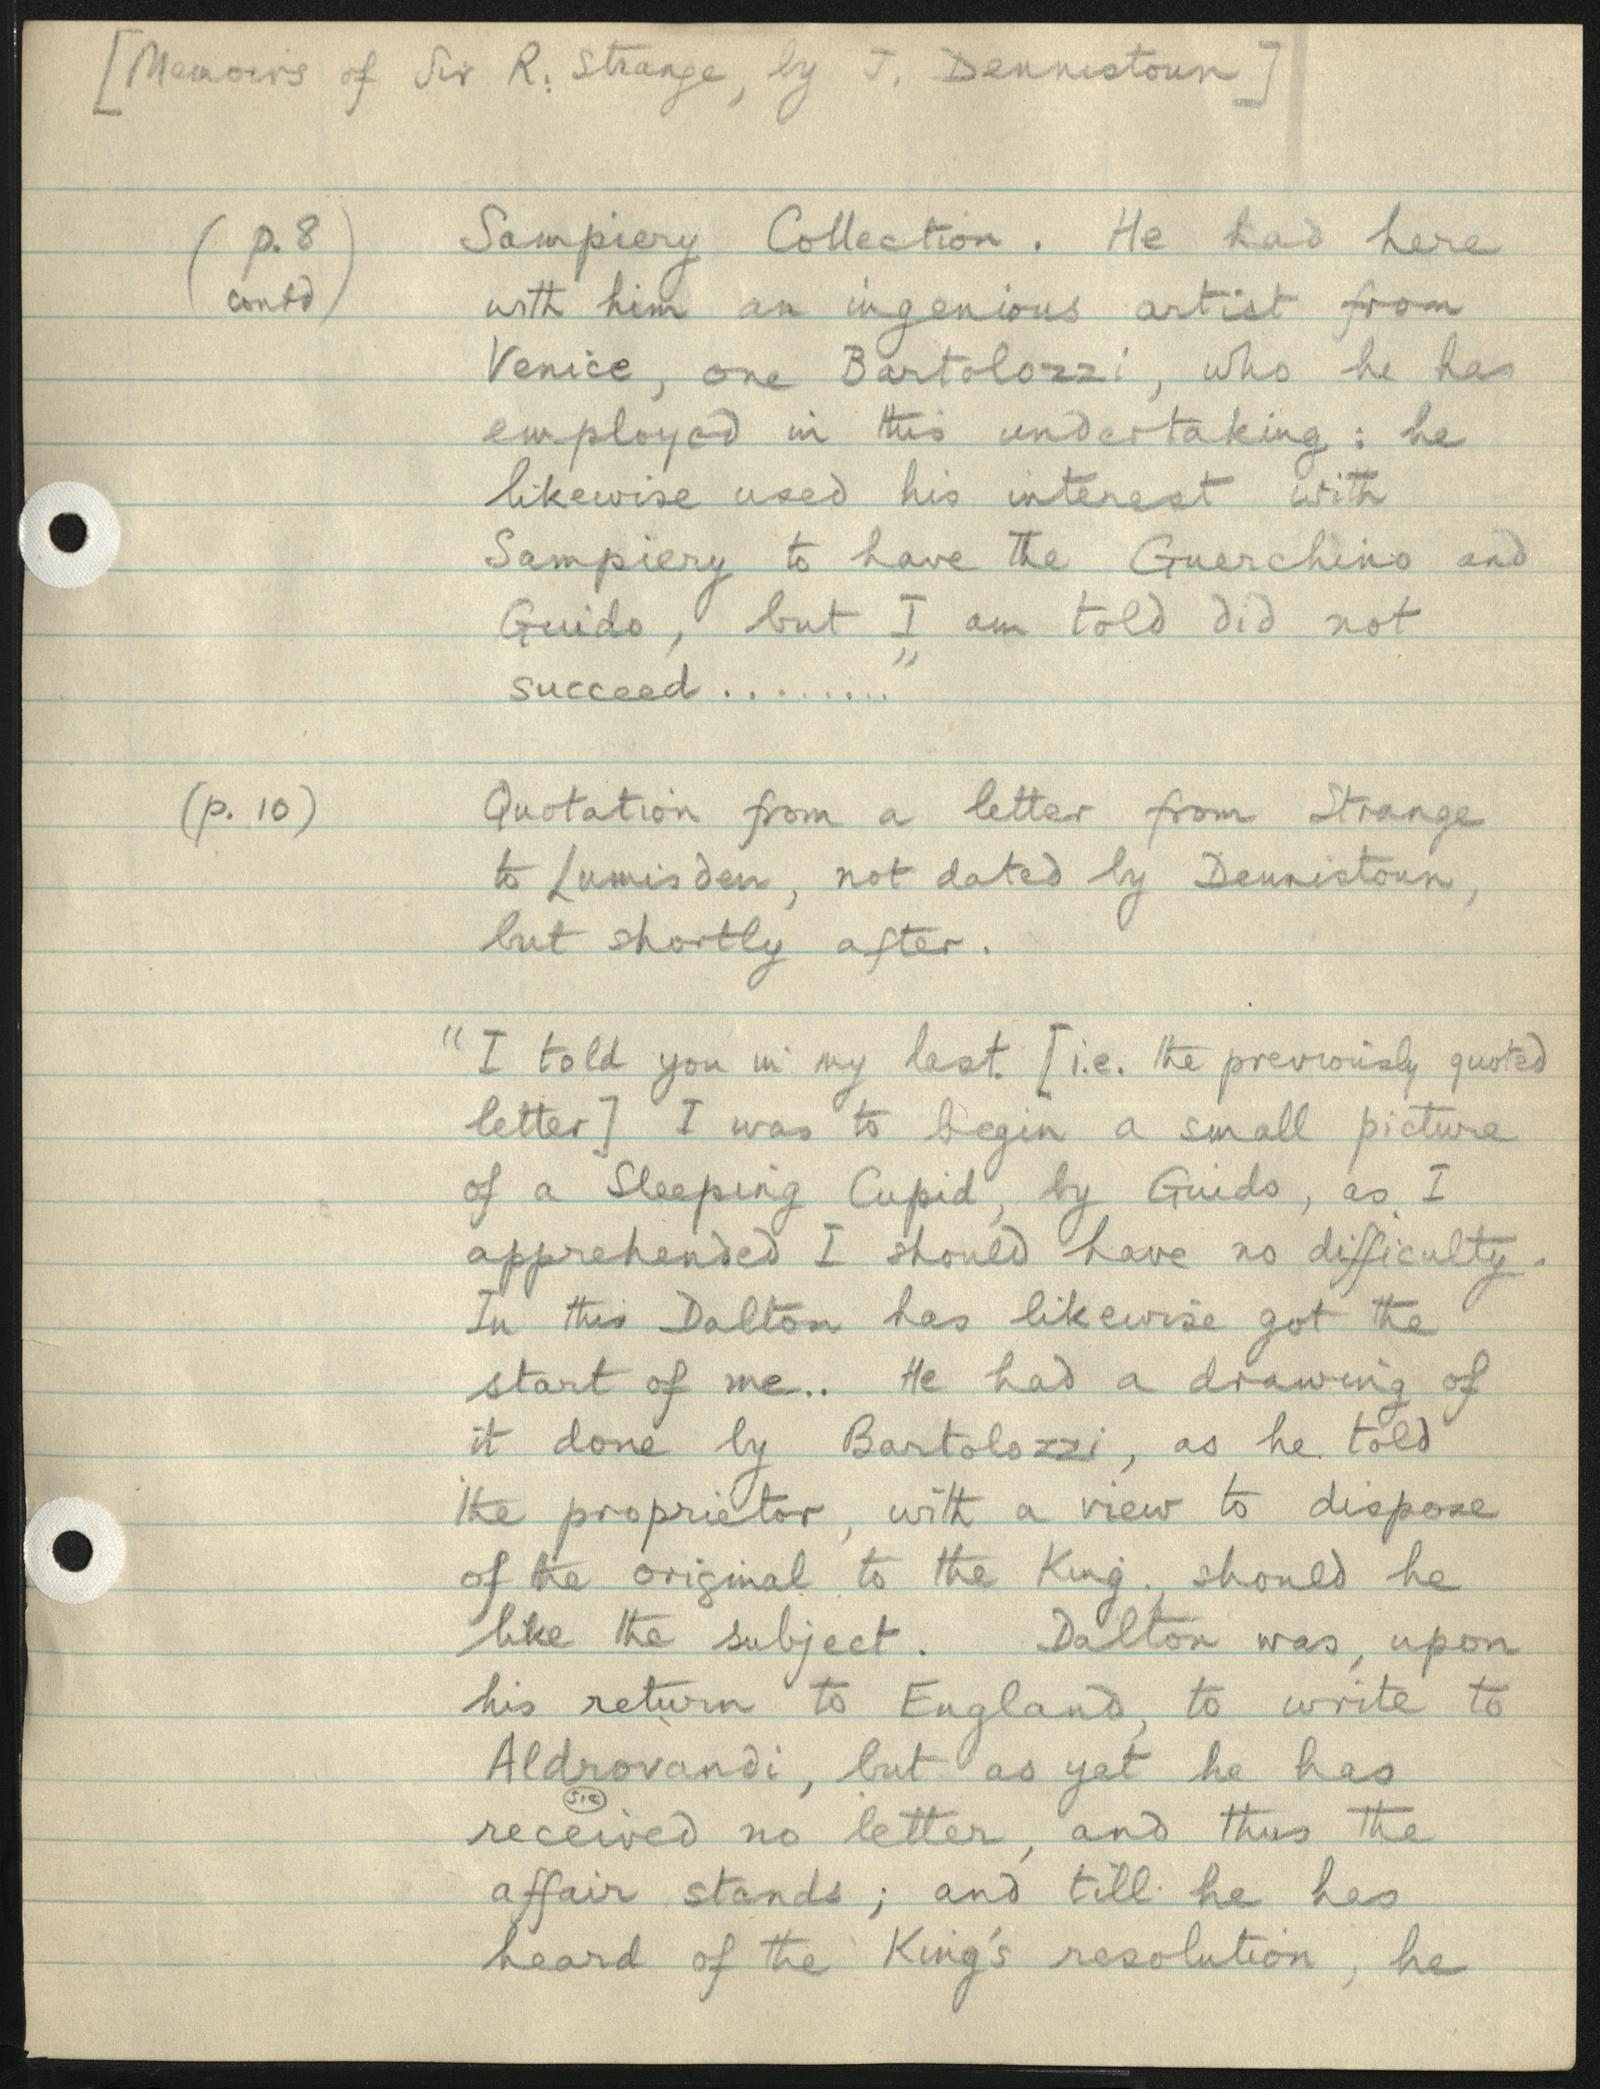 [Memoirs of Sir R. Strange, by J. Dennistoun]
(p. 8 contd)
Sampiery Collection. He had here
with him an ingenious artist from
Venice, one Bartolozzi, who he has
employed in this undertaking: he
likewise used his interest with
Sampiery to have the Guerchino and
Guido, but I am told did not
succeed........."
(p. 10)
Quotation from a letter from Strange
to Lumisden, not dated by Dennistoun,
but shortly after.
"I told you in my last. [i.e. the previously quoted
letter] I was to begin a small picture
of a Sleeping Cupid, by Guido, as I
apprehended I should have no difficulty.
In this Dalton has likewise got the
start of me.. He had a drawing of
it done by Bartolozzi, as he told
the proprietor, with a view to dispose
of the original to the King, should he
like the subject. Dalton was, upon
his return to England, to write to
Aldrovandi, but as yet he has
sic
received no letter, and thus the
affair stands; and till he has
heard of the King's resolution, he